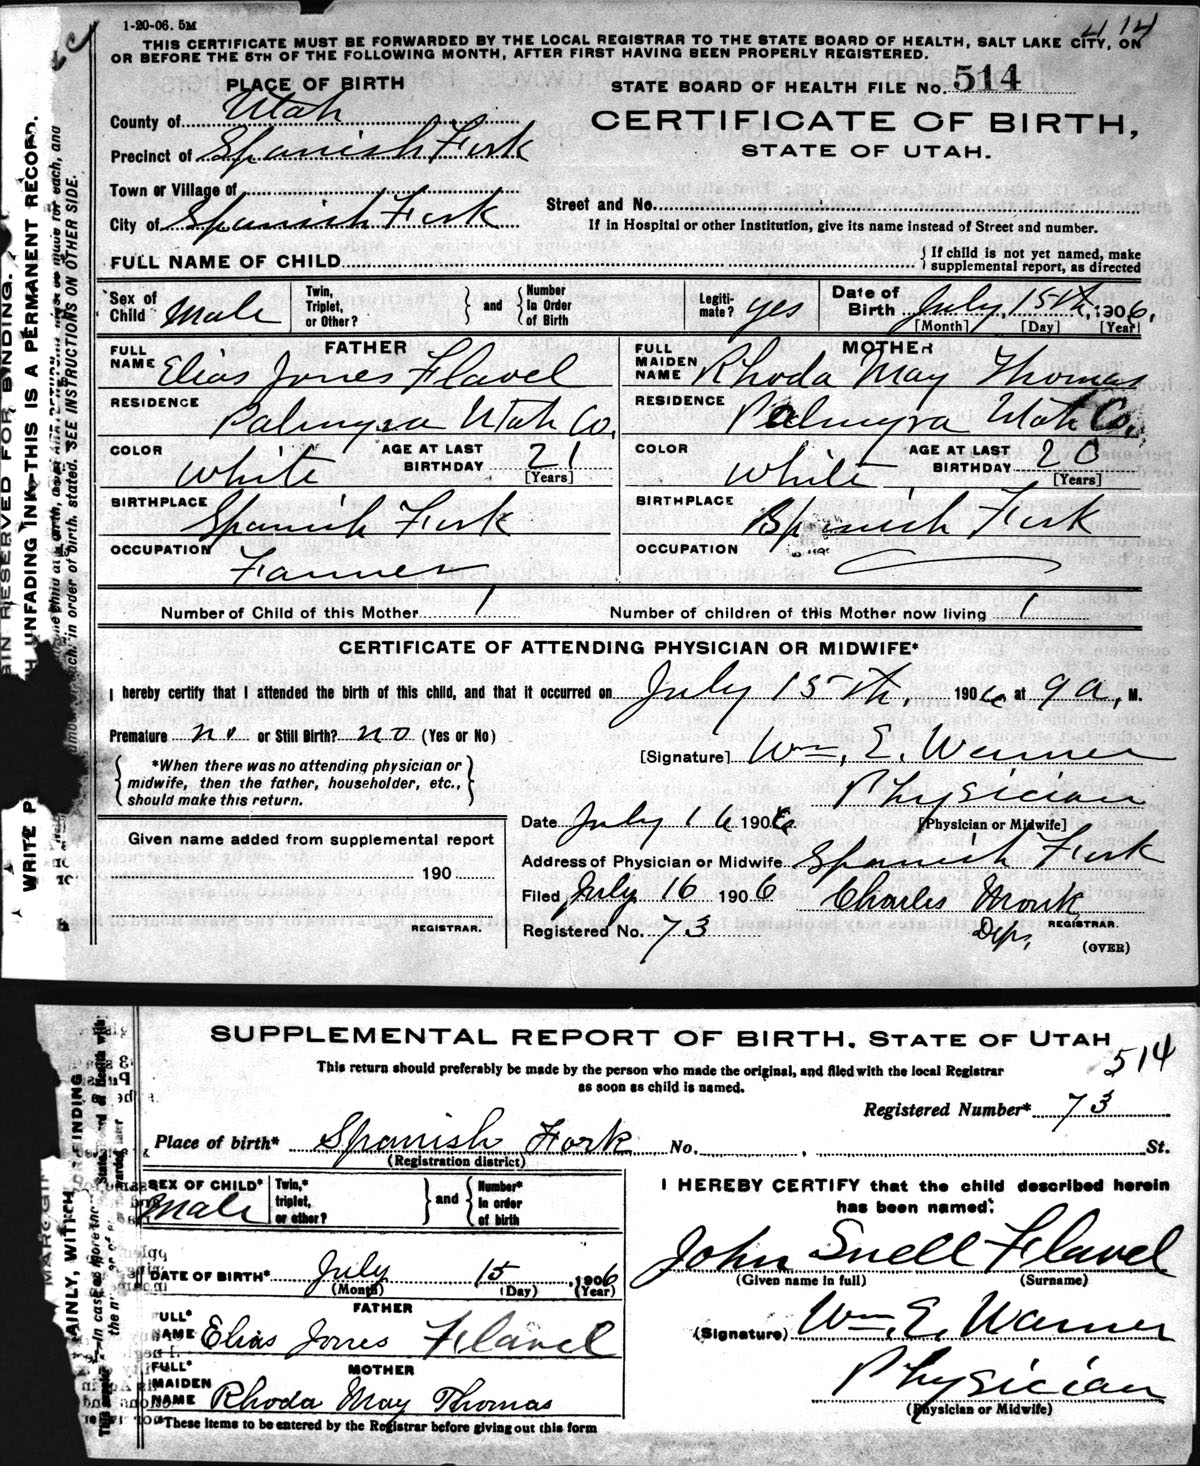 1-20-06. 5M
414
THIS CERTIFICATE MUST BE FORWARDED BY THE LOCAL REGISTRAR TO THE STATE BOARD OF HEALTH, SALT LAKE CITY, ON
OR BEFORE THE 5TH OF THE FOLLOWING MONTH, AFTER FIRST HAVING BEEN PROPERLY REGISTERED.
PLACE OF BIRTH
STATE BOARD OF HEALTH FILE No. 514
County of Utah
CERTIFICATE OF BIRTH,
Precinct of Spanish Fork
STATE OF UTAH.
Town or Village of
Street and No.
City of Spanish Fork
If in Hospital or other Institution, give its name instead of Street and number.
FULL NAME OF CHILD
If child is not yet named, make
supplemental report, as directed
Sex of Child Male
Twin, Triplet, or Other?
and
Number In Order of Birth
Legiti-mate? yes
Date of Birth July, 15th, 1906.
[Month] [Day] [Year]
FATHER
MOTHER
FULL NAME Elias Jones Flavel
FULL MAIDEN NAME Rhoda May Thomas
RESIDENCE Palmyra Utah Co.
RESIDENCE Palmyra Utah Co.
COLOR White
AGE AT LAST BIRTHDAY 21 [Years]
COLOR White
AGE AT LAST BIRTHDAY 20 [Years]
BIRTHPLACE Spanish Fork
BIRTHPLACE Spanish Fork
OCCUPATION Farmer
OCCUPATION
Number of Child of this Mother 1
Number of children of this Mother now living 1
CERTIFICATE OF ATTENDING PHYSICIAN OR MIDWIFE*
I hereby certify that I attended the birth of this child, and that it occurred on July 15th, 1906 at 9 a, M.
Premature no or Still Birth? no (Yes or No)
[Signature] Wm. E. Warner
*When there was no attending physician or
midwife, then the father, householder, etc.,
should make this return.
Physician
[Physician or Midwife]
Date July 16 1906
Given name added from supplemental report
190
REGISTRAR.
Address of Physician or Midwife Spanish Fork
Filed July 16 1906
Charles Monk
Dep. REGISTRAR.
Registered No. 73
(OVER)
RESERVED FOR BINDING.
UNFADING INK—THIS IS A PERMANENT RECORD.
in order of birth, stated. SEE INSTRUCTIONS ON OTHER SIDE.
SUPPLEMENTAL REPORT OF BIRTH, STATE OF UTAH
514
This return should preferably be made by the person who made the original, and filed with the local Registrar
as soon as child is named.
Registered Number* 73
Place of birth* Spanish Fork No. St.
(Registration district)
SEX OF CHILD* Male
Twin,* triplet, or other?
and
Number* in order of birth
I HEREBY CERTIFY that the child described herein
has been named:
John Snell Flavel
(Given name in full) (Surname)
DATE OF BIRTH* July 15 1906
(Month) (Day) (Year)
FATHER
FULL* NAME Elias Jones Flavel
(Signature) Wm. E. Warner
MOTHER
FULL* MAIDEN NAME Rhoda May Thomas
Physician
(Physician or Midwife)
*These items to be entered by the Registrar before giving out this form